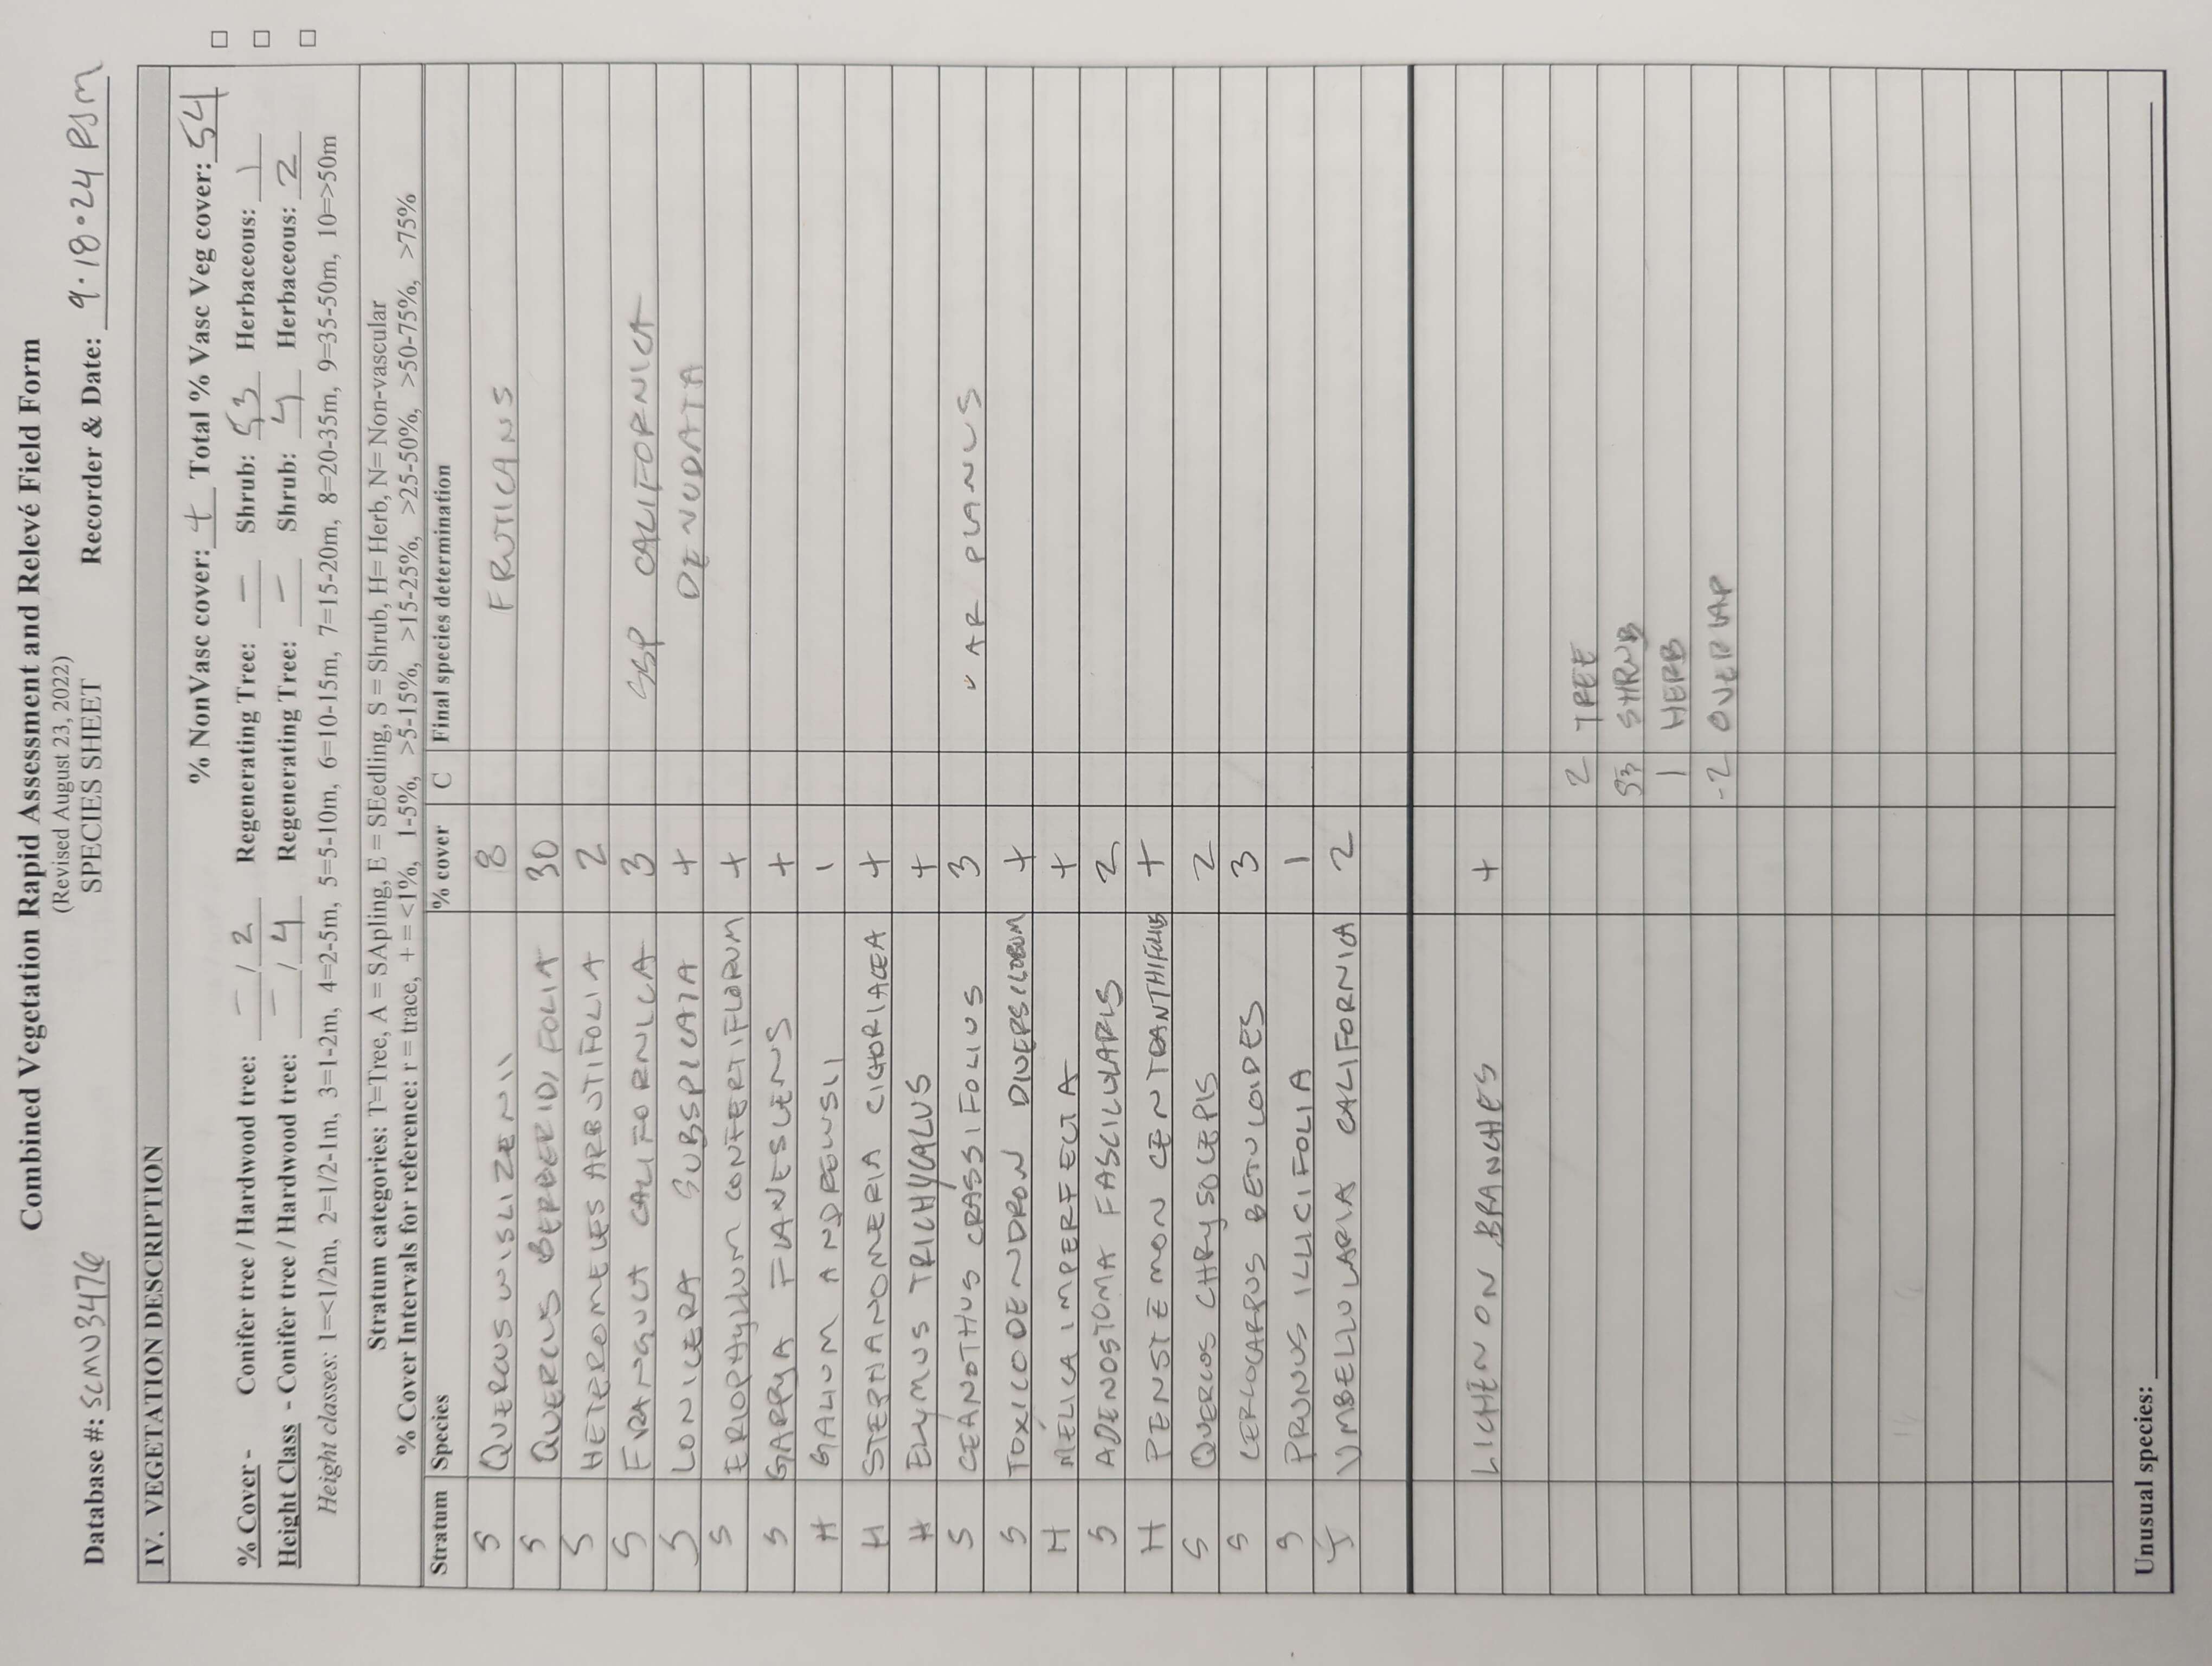 Combined Vegetation Rapid Assessment and Relevé Field Form
(Revised August 23, 2022)
SPECIES SHEET
Database #: SCMU3476 Recorder & Date: 9·18·24 RSM
IV. VEGETATION DESCRIPTION
% NonVasc cover: + Total % Vasc Veg cover: 54
% Cover - Conifer tree / Hardwood tree: — / 2 Regenerating Tree: — Shrub: 53 Herbaceous: 1
Height Class - Conifer tree / Hardwood tree: — / 4 Regenerating Tree: — Shrub: 4 Herbaceous: 2
Height classes: 1=<1/2m, 2=1/2-1m, 3=1-2m, 4=2-5m, 5=5-10m, 6=10-15m, 7=15-20m, 8=20-35m, 9=35-50m, 10=>50m
Stratum categories: T=Tree, A = SApling, E = SEedling, S = Shrub, H= Herb, N= Non-vascular
% Cover Intervals for reference: r = trace, + = <1%, 1-5%, >5-15%, >15-25%, >25-50%, >50-75%, >75%
Stratum Species % cover C Final species determination
S QUERCUS WISLIZENII 8 FRUTICANS
S QUERCUS BERBERIDIFOLIA 30
S HETEROMELES ARBUTIFOLIA 2
S FRANGULA CALIFORNICA 3 SSP CALIFORNICA
S LONICERA SUBSPICATA + DENUDATA
S ERIOPHYLLUM CONFERTIFLORUM +
S GARRYA FLAVESCENS +
H GALIUM ANDREWSLI 1
H STEPHANOMERIA CICHORIACEA +
H ELYMUS TRICHYCALUS +
S CEANOTHUS CRASSIFOLIUS 3 VAR PLANUS
S TOXICODENDRON DIVERSILOBUM +
H MELICA IMPERFECTA +
S ADENOSTOMA FASCICULARIS 2
H PENSTEMON CENTRANTHIFOLIUS +
S QUERCUS CHRYSOLEPIS 2
S CERCOCARPUS BETULOIDES 3
S PRUNUS ILLICIFOLIA 1
T UMBELLULARIA CALIFORNICA 2
LICHEN ON BRANCHES +
2 TREE
53 SHRUB
1 HERB
-2 OVERLAP
Unusual species: